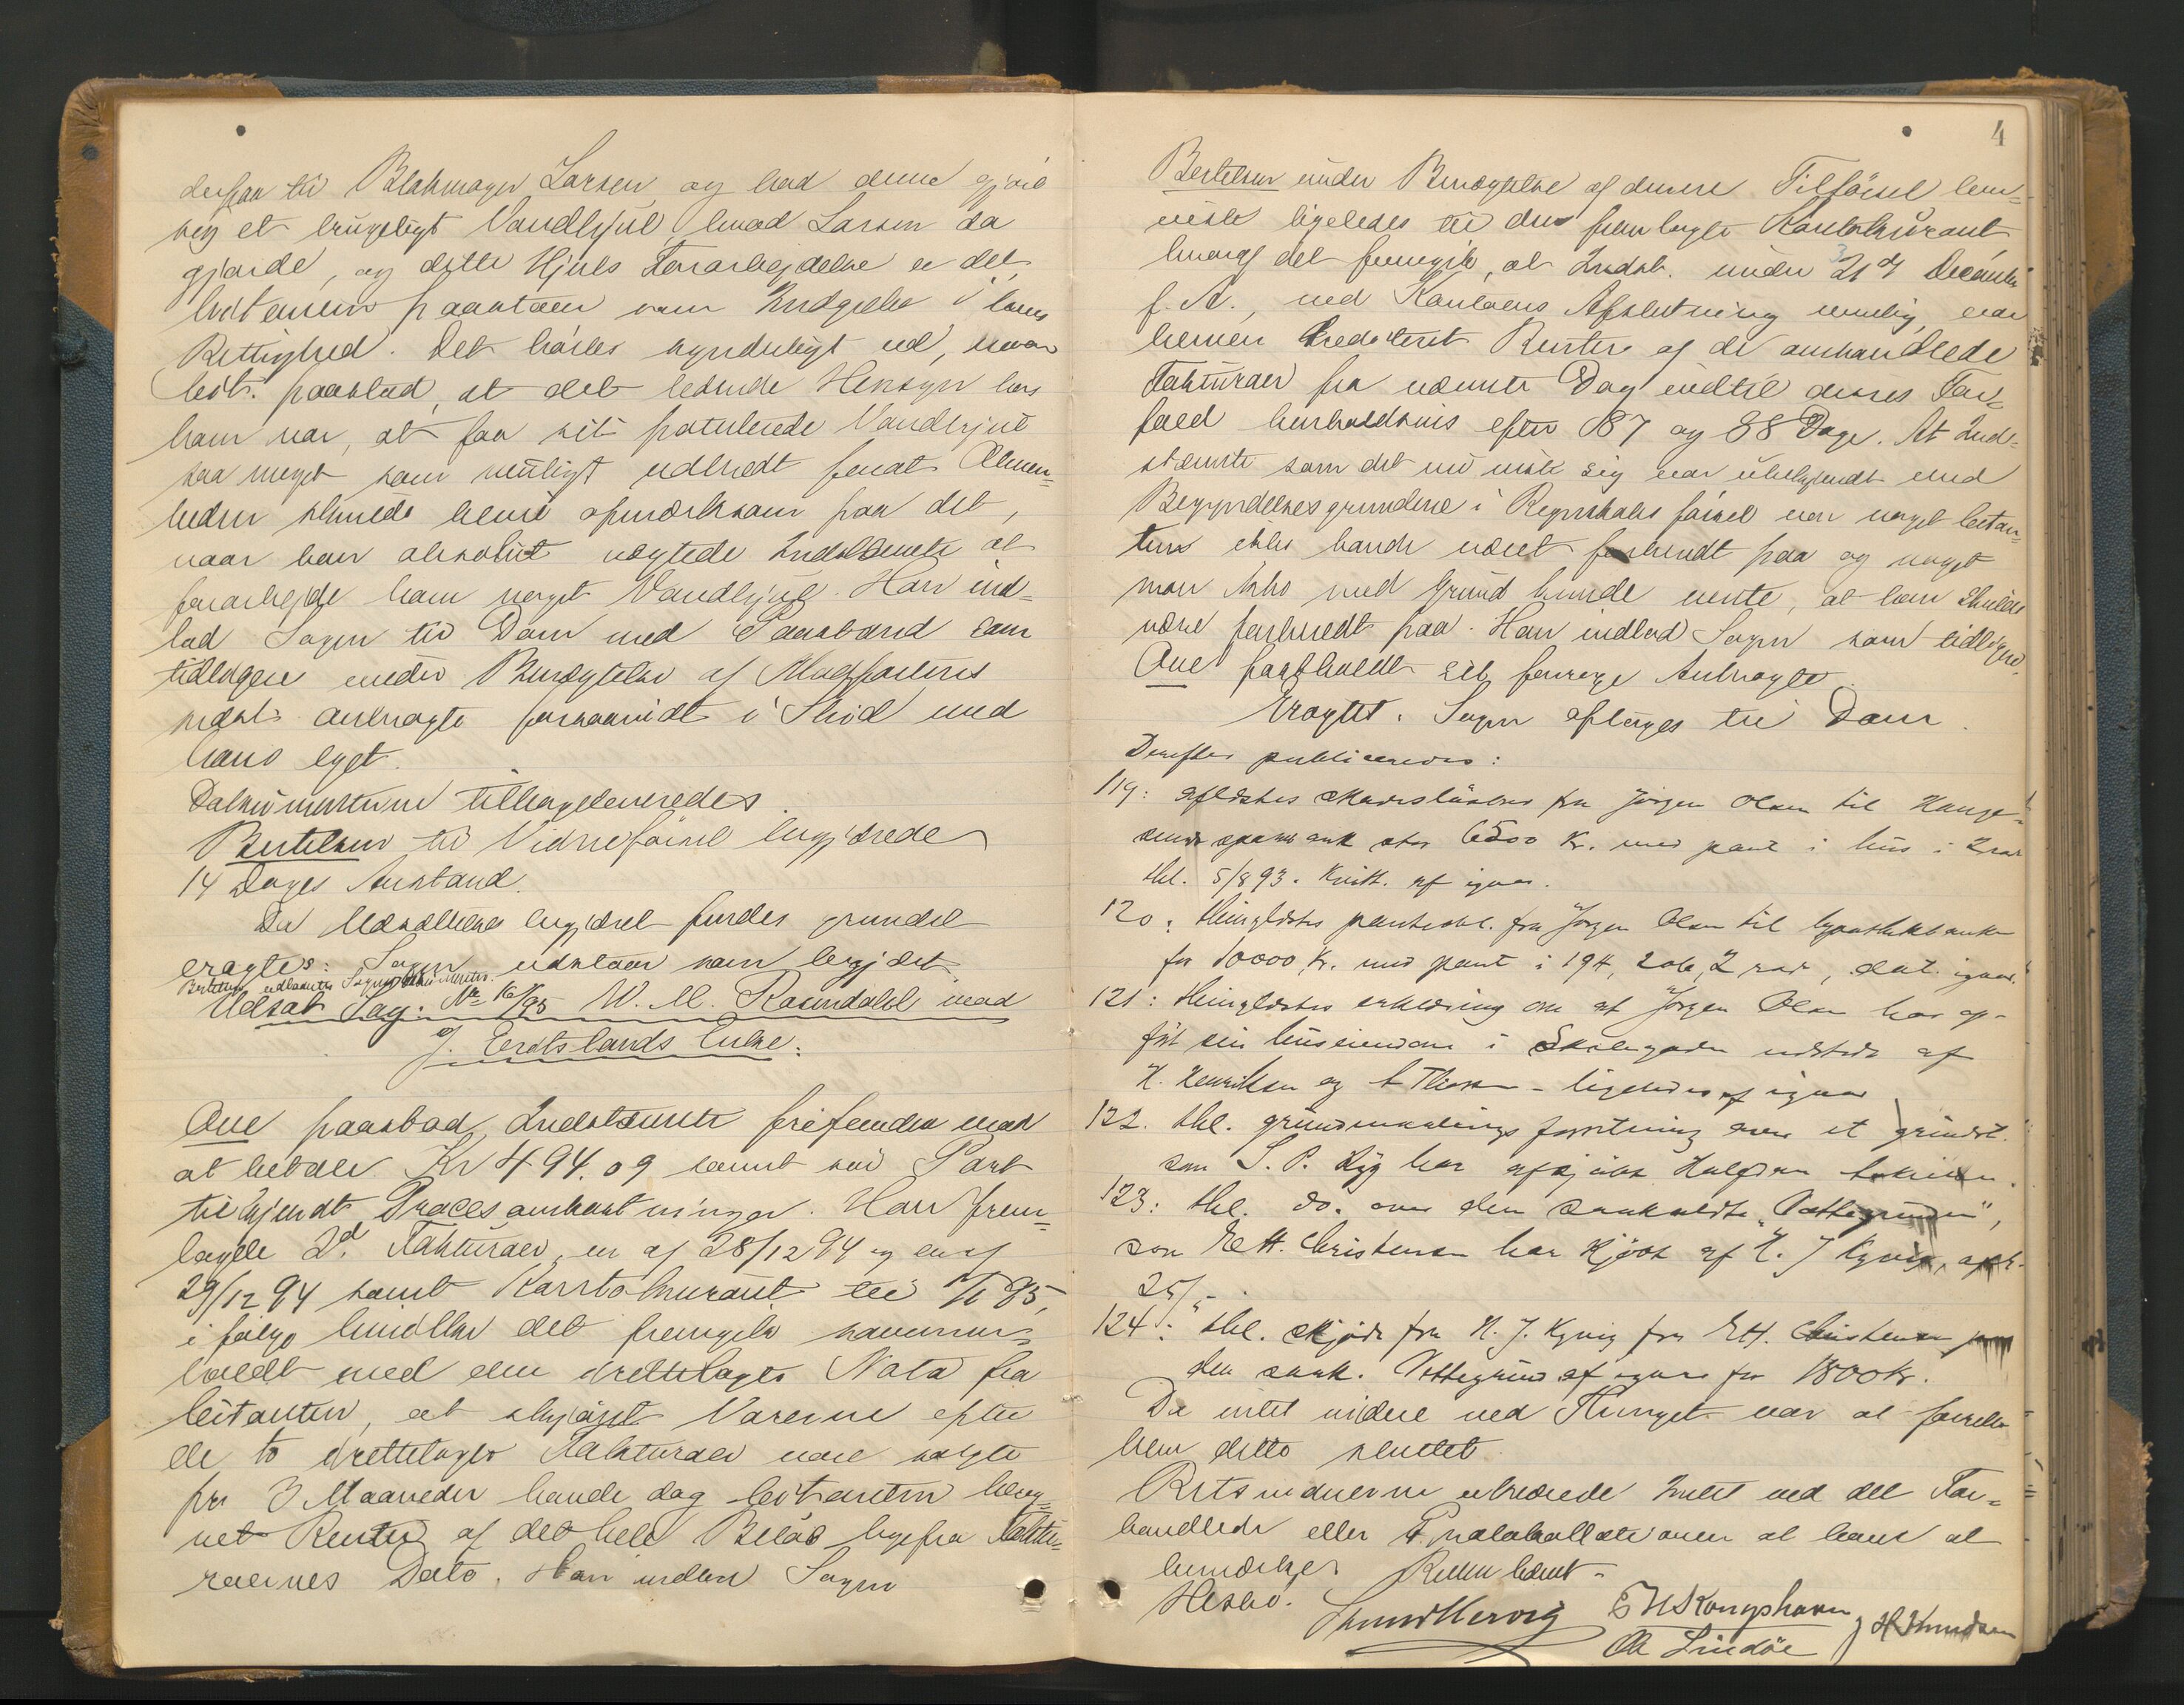 derpaa til Blakmager Larsen og bad denne gjøre
sig et brugeligt Vandhjul hvad Larsen da
gjorde, og dette Hjuls Forarbejdelse er det
Citanten paastaar som Indgreb i hans
Rettighed. Det hører synderligt ud, naar
Cit. paastod, at det ledende Hensyn hos
ham var, at faa sit patenterede Vandhjul
saa meget som muligt udbredt forat Almen=
heden kunde blive opmærksom paa det,
naar han absolut nægtede Indstævnte at
forarbejde ham noget Vandhjul. Han ind=
lod Sagen til Dom med Paastand som
tidligere under Benægtelse af Modpartens
sidst anbragte forsaavidt i Strid med
hans eget.
Dokumenterne tilbageleveredes.
Bertelsen til Vidneførsel begjærede
14 Dages Anstand.
Da Udsættelses begjæret findes grundet
eragtes: Sagen udstaar som begjæret.
Bertelsen udlaantes Sagens Dokumenter.
Udsat Sag: No 16/95 W. M. Rosendahl mod
J. Erdtslands Enke:
Aue paastod Indstævnte frifunden mod
at betale Kr 494.09 samt sig
tilkjendt Procesomkostninger. Han frem=
lagde 2d Fakturaer, en af 28/12 94 og en af
29/12 94 samt Kontokurant til 95,
i følge hvilke det fremgik sammen=
holdt med den irettelagte Nota fra
Citanten, at skjønt Varerne efter
de to irettelagte Fakturaer vare solgte
pr 3 Maaneder havde dog Citanten bereg=
net Renter af det hele Beløb ligefra Faktu=
raernes Dato. Han indlod Sagen
4
Bertelsen under Benægtelse af denne Tilførsel hen=
viste ligeledes til den fremlagte Kontokurant
hvoraf det fremgik, at Indst. under 31te Decemb
f. A., ved Kontoens Afslutning nemlig, var
bleven krediteret Renter af de omhandlede
Fakturaer fra nævnte Dag indtil deres For=
fald henholdsvis efter 87 og 88 Dage. At Ind=
stævnte som det nu viste sig var ubekjendt med
Begyndelsesgrundene i Regnskabsførsel var noget Citan=
ten ikke havde været forberedt paa og noget
man ikke med Grund kunde vente, at han skulde
være forberedt paa. Han indlod Sagen som tidligere.
Aue fastholdt sit forrige Anbragte.
Eragtet: Sagen optages til Dom.
Derefter publiceredes:
119: aflæstes skadesløsbrev fra Jørgen Olsen til Hauge=
sunds sparebank stor 6500 Kr. med pant i hus i 2 rad
thl. 5/8 93. Kvitt. af igaar.
120: thinglæstes panteobl. fra Jørgen Olsen til hypothekbanken
for 10000 Kr. med pant i 194, 206, 2 rad, dat. igaar.
121: thinglæstes erklæring om at Jørgen Olsen har op=
ført sin huseiendom i Skolegaden udstedt af
H. Henriksen og - ligeledes af igaar
122. thl. grundmaalings forretning over et grundst.
som S. P. har afkjøbt Halfdan.
123: thl. do. over den saakaldte,
som E. H. Christensen har kjøbt af N. J. Kyvig,
25/
124: thl. skjøde fra N. J. Kyvig for E. H. Christensen paa
den saak. af igaar for 1800 Kr.
Da intet videre ved Thinget var at foretage
blev dette sluttet.
Retsvidnerne erklærede Intet ved det For=
handlede eller Protokollationen at have at
bemærke. Retten hævet.
Hesbø.
E H Kongshavn
J H Knudsen
Lindøe